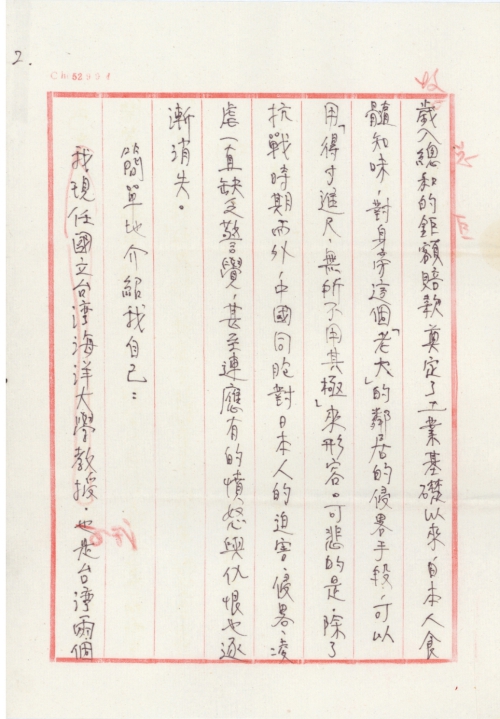 2.
歲入總和的鉅額賠款奠定了工業基礎以來，日本人食
髓知味，對身旁這個「老大」的鄰居的侵略手段，可以
用「得寸進尺，無所不用其極」來形容。可悲的是，除了
抗戰時期而外，中國同胞對日本人的迫害、侵畧、凌
虐一直缺乏警覺，甚至連應有的憤怒與仇恨也逐
漸消失。
簡單地介紹我自己：
我現任國立台灣海洋大學教授，也是台灣兩個